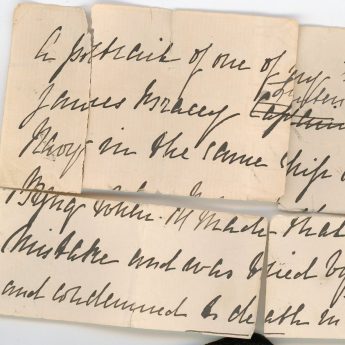 A portrait of one of my
James Bracey Captain
in the same ship
Byng when
made that
mistake and was tried by
and condemned to death in